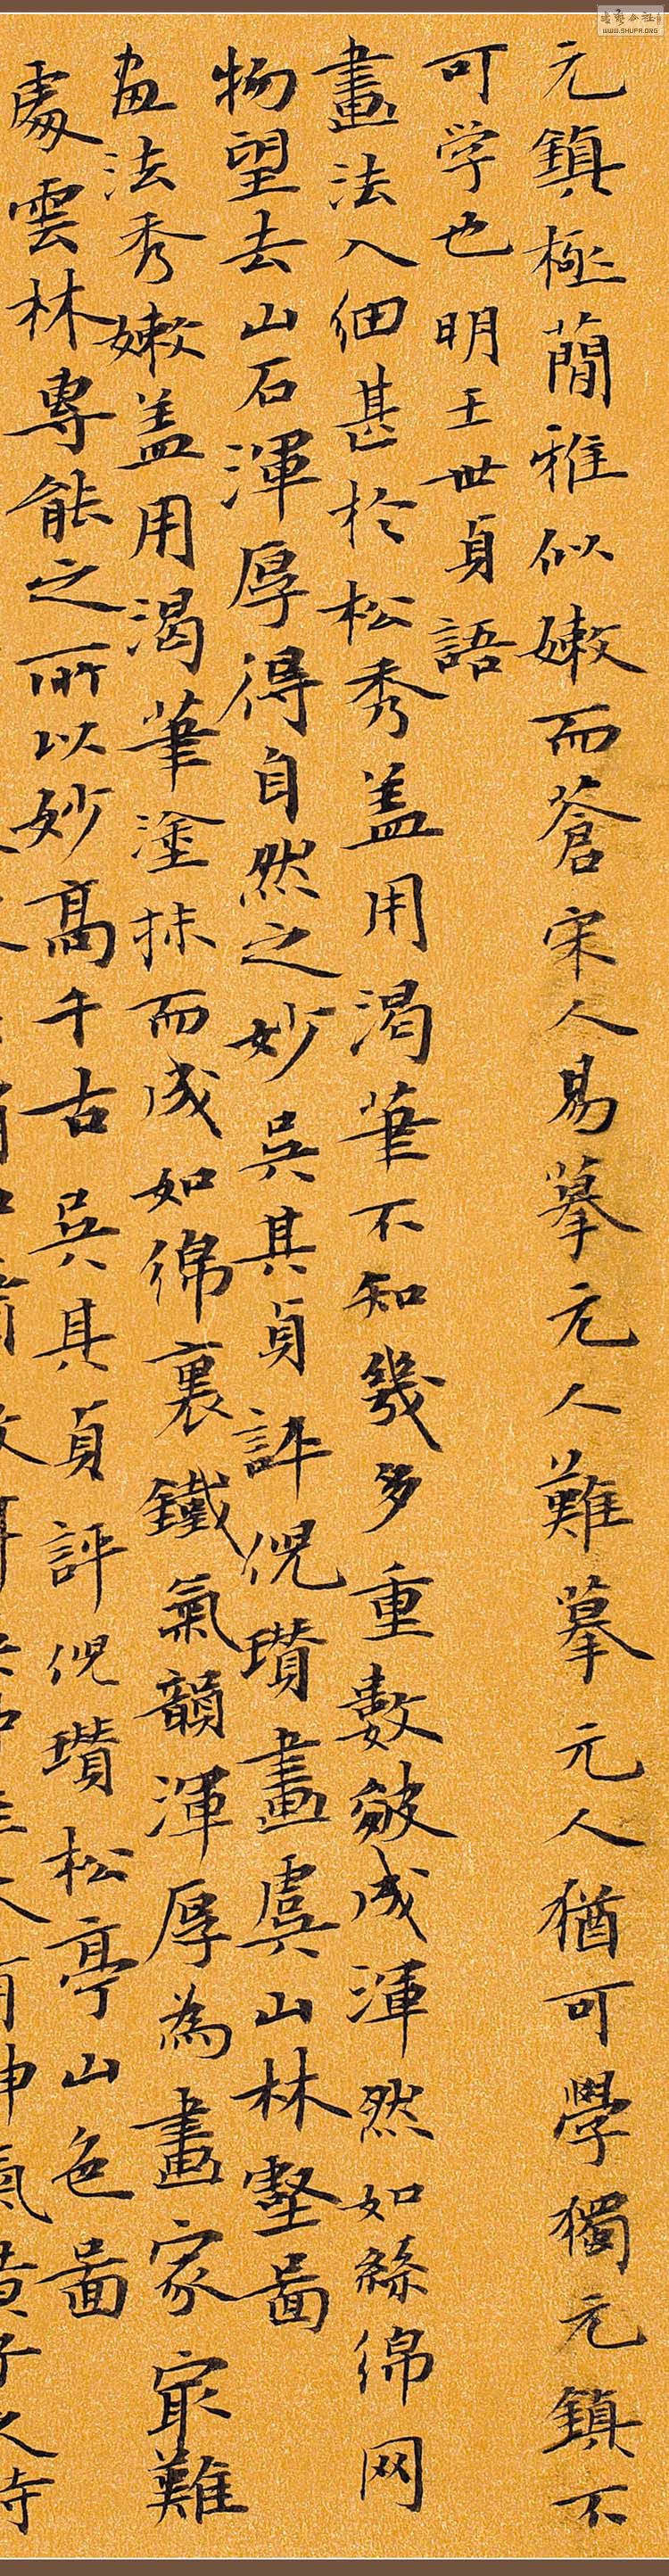 元鎮極簡雅似嫩而蒼宋人易摹元人難摹元人猶可學獨元鎮不
可学也明王世貞語
畫法入細甚於松秀盖用渴筆不知幾多重數皴成渾然如絲綿网
物望去山石渾厚得自然之妙吳其貞評倪瓚畫虞山林壑啚
畫法秀嫩盖用渴筆塗抹而成如綿裹鐵氣韻渾厚為畫家冣難
處雲林專能之所以妙高千古吳其貞評倪瓚松亭山色啚
WWW.SHUFA.ORG